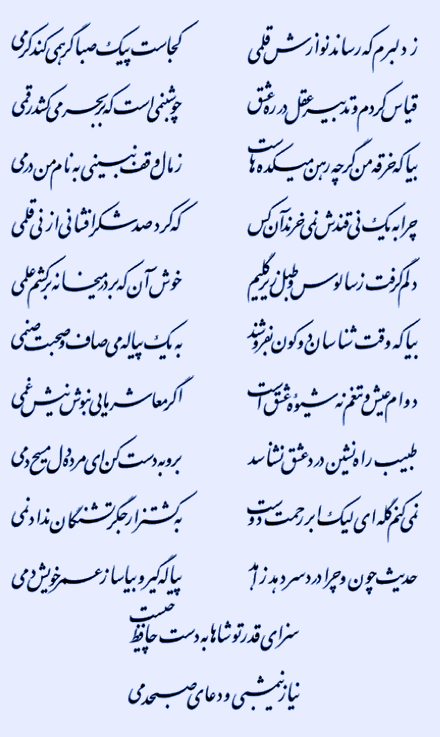 ز دلبرم که رساند نوازش قلمی کجاست پیک صبا گر همی کند کرمی
قیاس کردم و تدبیر عقل در ره عشق چو شبنمی است که بر بحر می‌کشد رقمی
بیا که خرقه من گرچه رهن میکده هاست ز مال وقف نبینی به نام من درمی
چرا به یک نی قندش نمی‌خرند آن کس که کرد صد شکرافشانی از نی قلمی
دلم گرفت ز سالوس و طبل زیر گلیم خوش آن که بر در میخانه برکشم علمی
بیا که وقت شناسان دو کون بفروشند به یک پیاله می صاف و صحبت صنمی
دوام عیش و تنعم نه شیوه عشق است اگر معاشر مایی بنوش نیش غمی
طبیب راه نشین درد عشق نشناسد برو به دست کن ای مرده دل مسیح دمی
نمی‌کنم گله‌ای لیک ابر رحمت دوست به کشتزار جگرتشنگان نداد نمی
حدیث چون و چرا درد سر دهد زاهد پیاله گیر و بیاسا ز عمر خویش دمی
سزای قدر تو شاها به دست حافظ چیست
نیاز نیمشبی و دعای صبحدمی